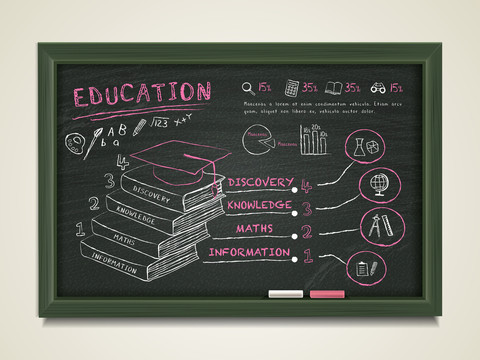 EDUCATION
15%
35%
35%
15%
Maecenas a lorem et enim condimentum vehicula. Etiam arcu
quam, aliquet non libero ac, vehicula auctor dolor.
A B
b a
√123 x+Y
Maecenas
Maecenas
18% 20% 10%
4
3
2
1
DISCOVERY
KNOWLEDGE
MATHS
INFORMATION
DISCOVERY 4
KNOWLEDGE 3
MATHS 2
INFORMATION 1